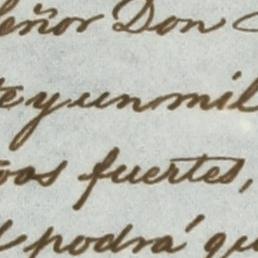 eñor Don
e y un mil
os fuertes,
podrá qu